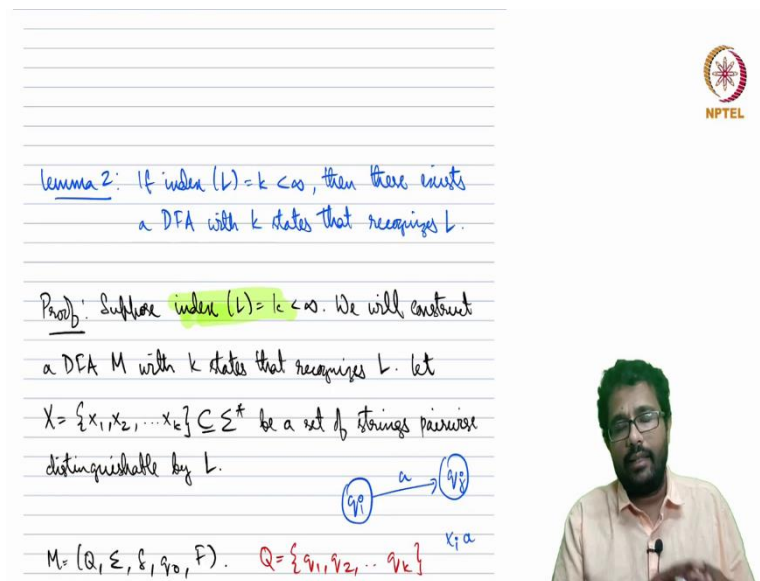 NPTEL
Lemma 2: If index (L) = k < ∞, then there exists
a DFA with k states that recognizes L.
Proof: Suppose index (L) = k < ∞. We will construct
a DFA M with k states that recognizes L. Let
X = {x₁, x₂, ... xₖ} ⊆ Σ* be a set of strings pairwise
distinguishable by L.
qᵢ a qⱼ
xᵢ a
M = (Q, Σ, δ, q₀, F). Q = {q₁, q₂, .. qₖ}